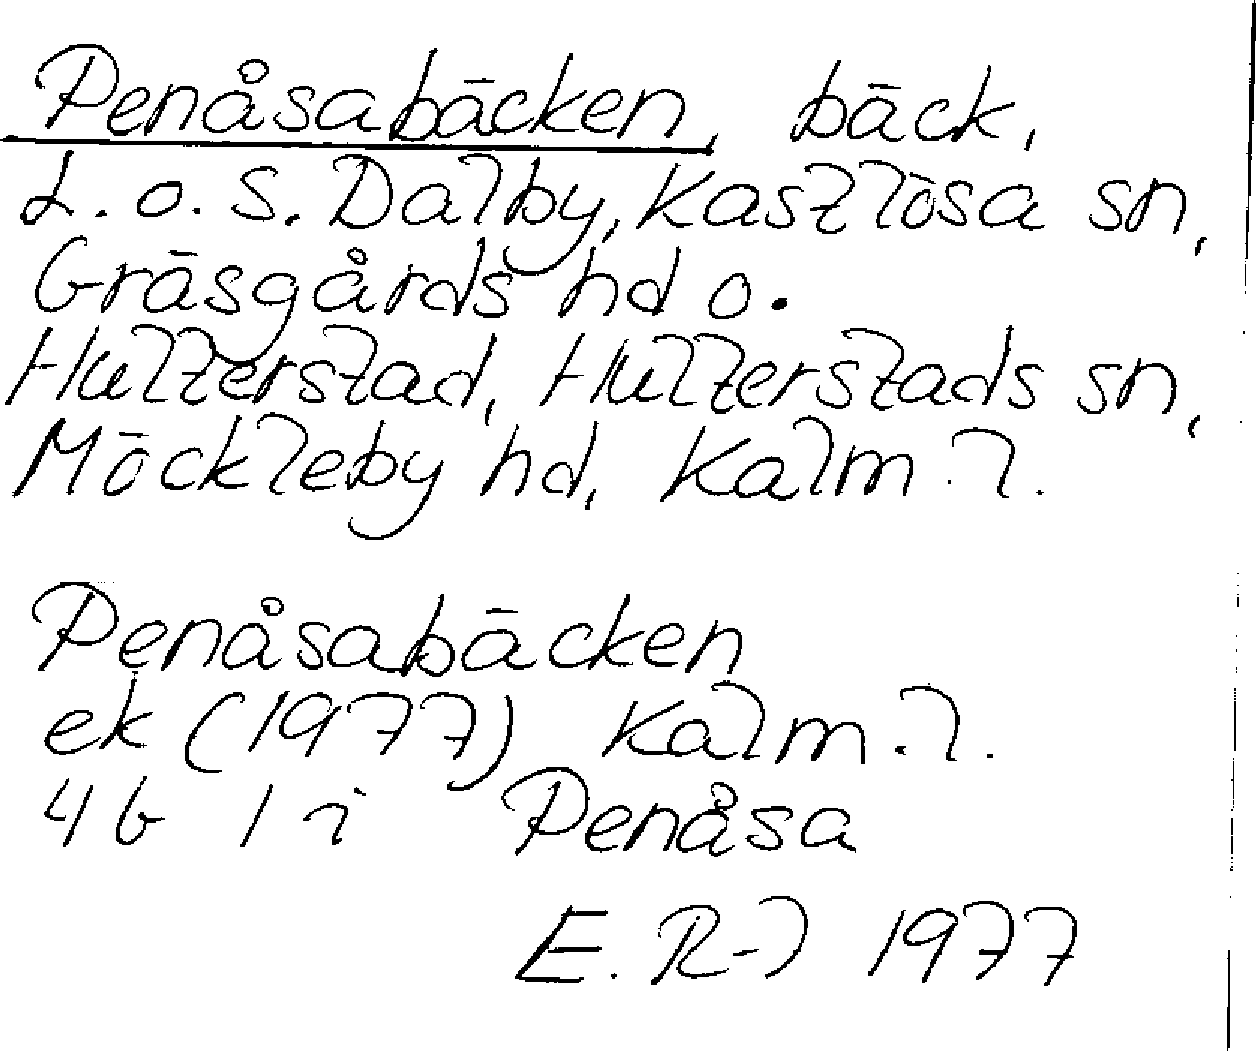 Penåsabäcken, bäck,
L. o. S. Dalby, Kastlösa sn,
Gräsgårds hd o.
Hulterstad, Hulterstads sn,
Möckleby hd, Kalm. l.
Penåsabäcken
ek (1977) Kalm. l.
4b 1 i Penåsa
E. R-) 1977